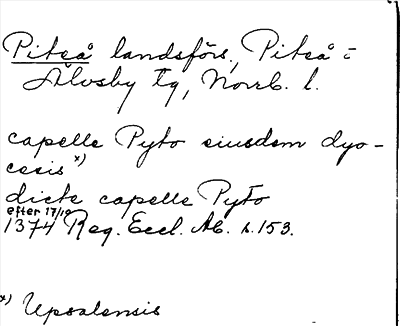 Piteå landsförs., Piteå ï
Älvsby tg, Norrb. l.
capelle Pyto eiusdem dyo-
cesis x)
dicte capelle Pyto
efter 17/10
1374 Reg. Eccl. Ab. s. 153.
x) Upsalensis